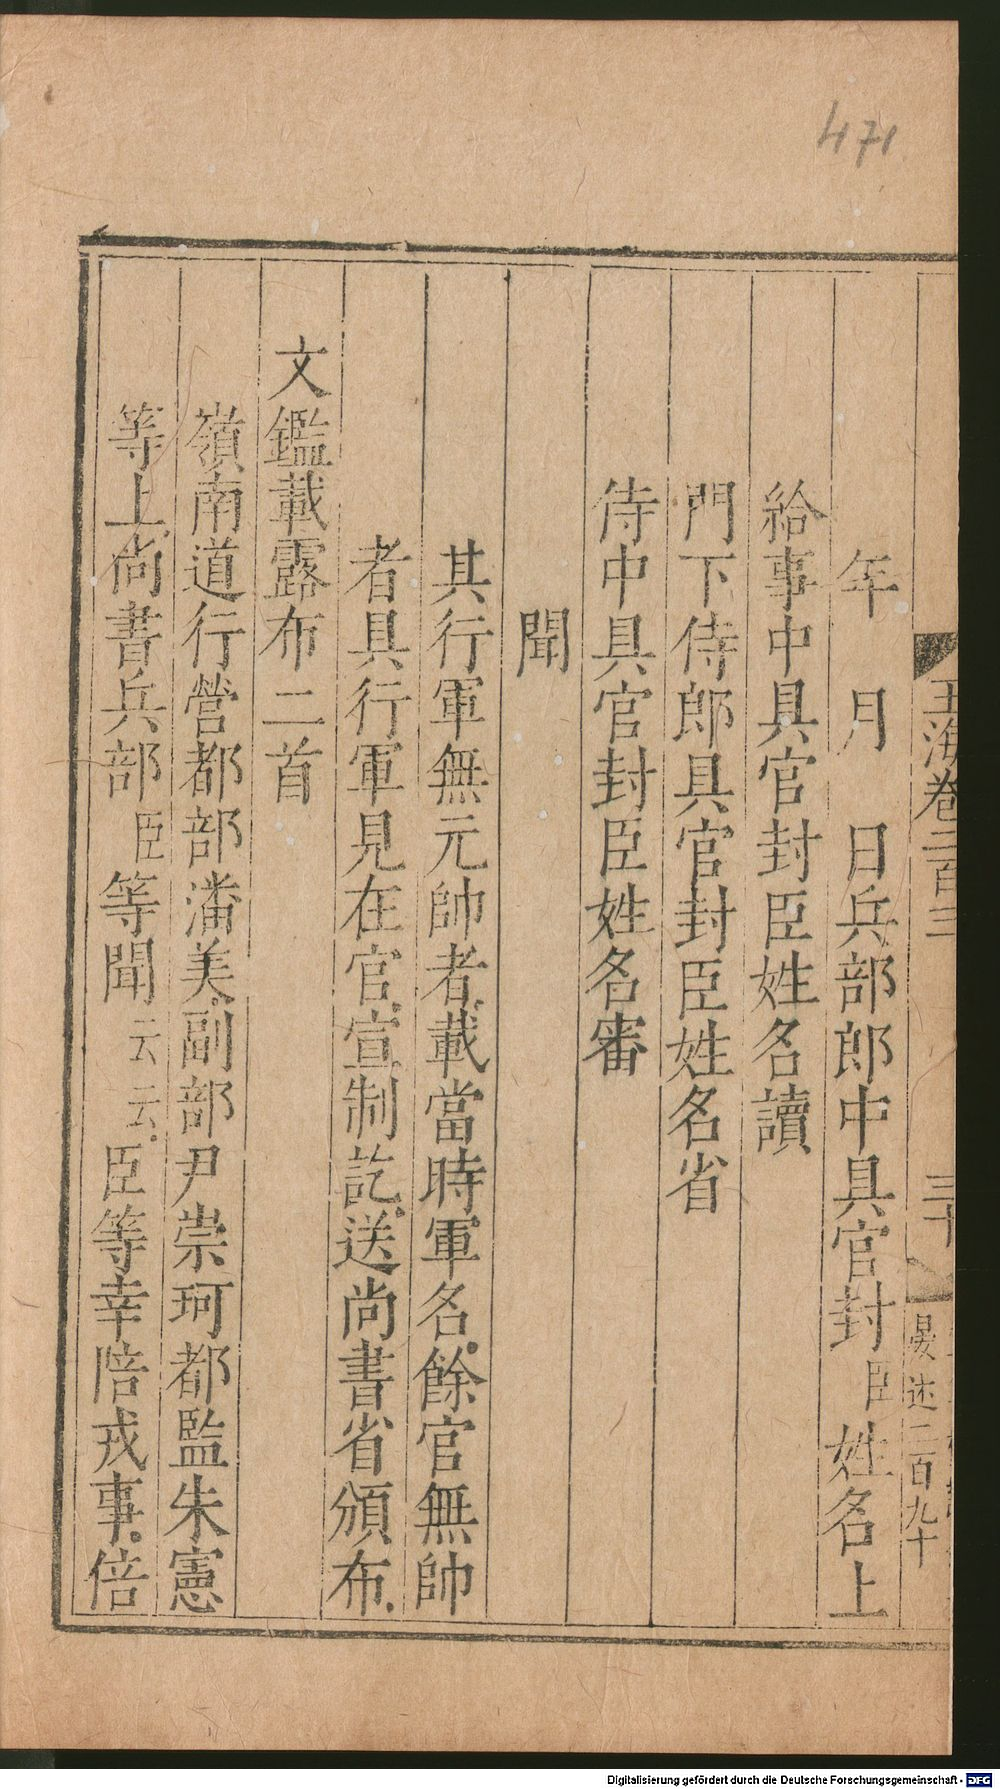 471
玉海卷二百三
三十
晏述二百九十
年　月　日兵部郎中具官封臣姓名上
給事中具官封臣姓名讀
門下侍郎具官封臣姓名省
侍中具官封臣姓名審
聞
其行軍無元帥者載當時軍名餘官無帥
者具行軍見在官宣制訖送尚書省頒布
文鑑載露布二首
嶺南道行營都部潘美副部尹崇珂都監朱憲
等上尚書兵部臣等聞云云臣等幸陪戎事倍
Digitalisierung gefördert durch die Deutsche Forschungsgemeinschaft - DFG